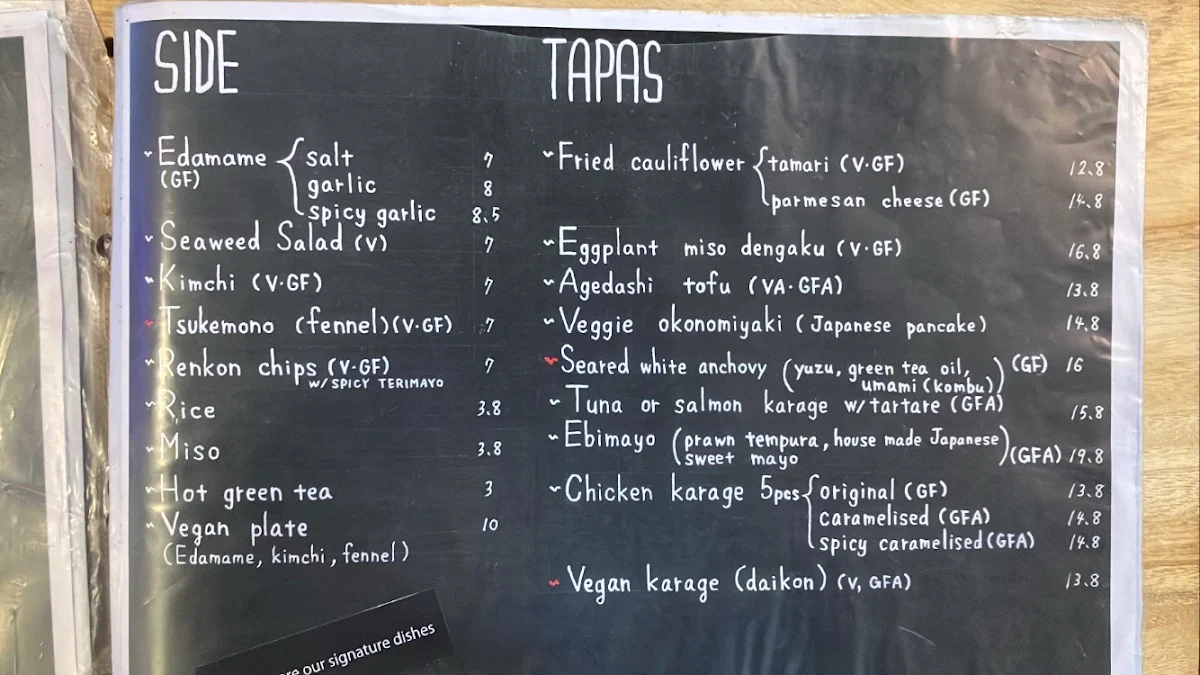 SIDE
Edamame { salt 7
(GF) garlic 8
spicy garlic 8.5
Seaweed Salad (V) 7
Kimchi (V·GF) 7
Tsukemono (fennel)(V·GF) 7
Renkon chips (V·GF) 7
w/ SPICY TERIMAYO
Rice 3.8
Miso 3.8
Hot green tea 3
Vegan plate 10
(Edamame, kimchi, fennel)
our signature dishes
TAPAS
Fried cauliflower { tamari (V·GF) 12.8
parmesan cheese (GF) 14.8
Eggplant miso dengaku (V·GF) 16.8
Agedashi tofu (VA·GFA) 13.8
Veggie okonomiyaki (Japanese pancake) 14.8
Seared white anchovy (yuzu, green tea oil, (GF) 16
umami (kombu))
Tuna or salmon karage w/tartare (GFA) 15.8
Ebimayo (prawn tempura, house made Japanese
sweet mayo) (GFA) 19.8
Chicken karage 5pcs { original (GF) 13.8
caramelised (GFA) 14.8
spicy caramelised (GFA) 14.8
Vegan karage (daikon) (V, GFA) 13.8